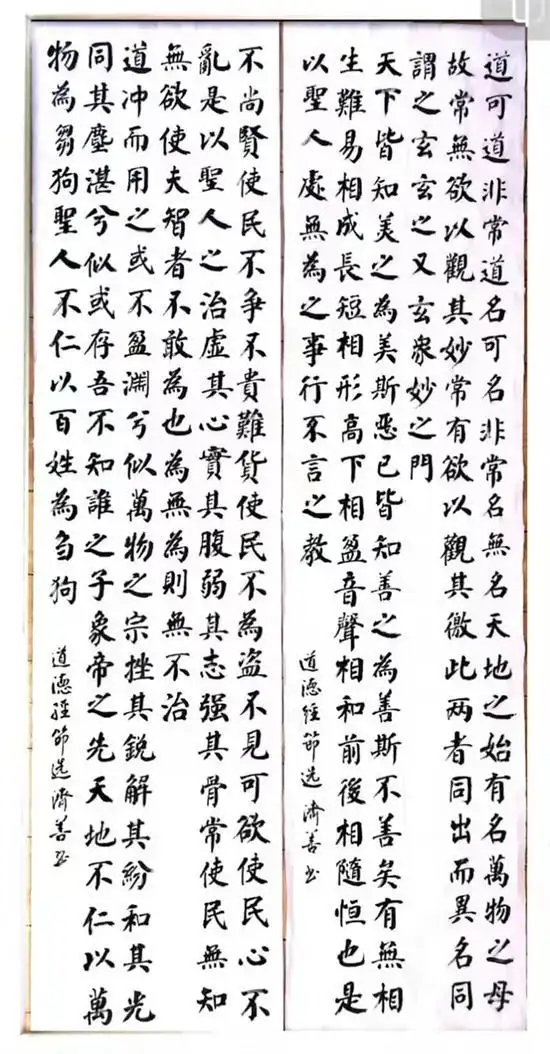 道可道非常道名可名非常名無名天地之始有名萬物之母
故常無欲以觀其妙常有欲以觀其徼此两者同出而異名同
謂之玄玄之又玄衆妙之門
天下皆知美之為美斯惡已皆知善之為善斯不善矣有無相
生難易相成長短相形高下相盈音聲相和前後相隨恒也是
以聖人處無為之事行不言之教
道德经節选濟善书
不尚賢使民不争不貴難貨使民不為盗不見可欲使民心不
亂是以聖人之治虚其心實其腹弱其志强其骨常使民無知
無欲使夫智者不敢為也為無為則無不治
道冲而用之或不盈淵兮似萬物之宗挫其鋭解其紛和其光
同其塵湛兮似或存吾不知誰之子象帝之先天地不仁以萬
物為芻狗聖人不仁以百姓為刍狗
道德经節选濟善书